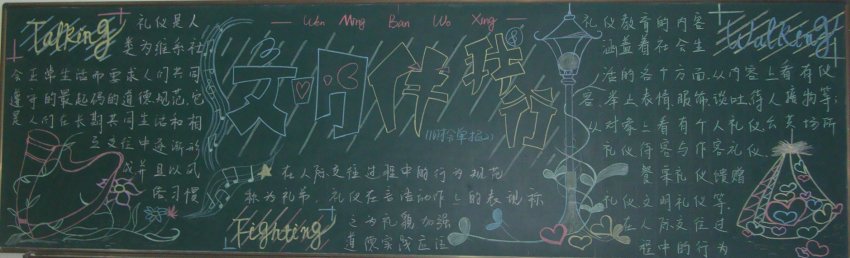 Talking
礼仪是人
类为维系社
会正常生活而要求人们共同
遵守的最起码的道德规范,它
是人们在长期共同生活和相
互交往中逐渐形
成并且以风
俗习惯
Wen Ming Ban Wo Xing
文明伴我行
在人际交往过程中的行为规范
称为礼节,礼仪在言语动作上的表现称
之为礼貌加强
道德实践应注
Fighting
礼仪教育的内容
涵盖着社会生
活的各个方面.从内容上看有仪
容.举止.表情.服饰.谈吐.待人接物等;
从对象上看有个人礼仪.公共场所
礼仪.待客与作客礼仪.
餐桌礼仪.馈赠
礼仪.文明礼仪等.
在人际交往过
程中的行为
Walking